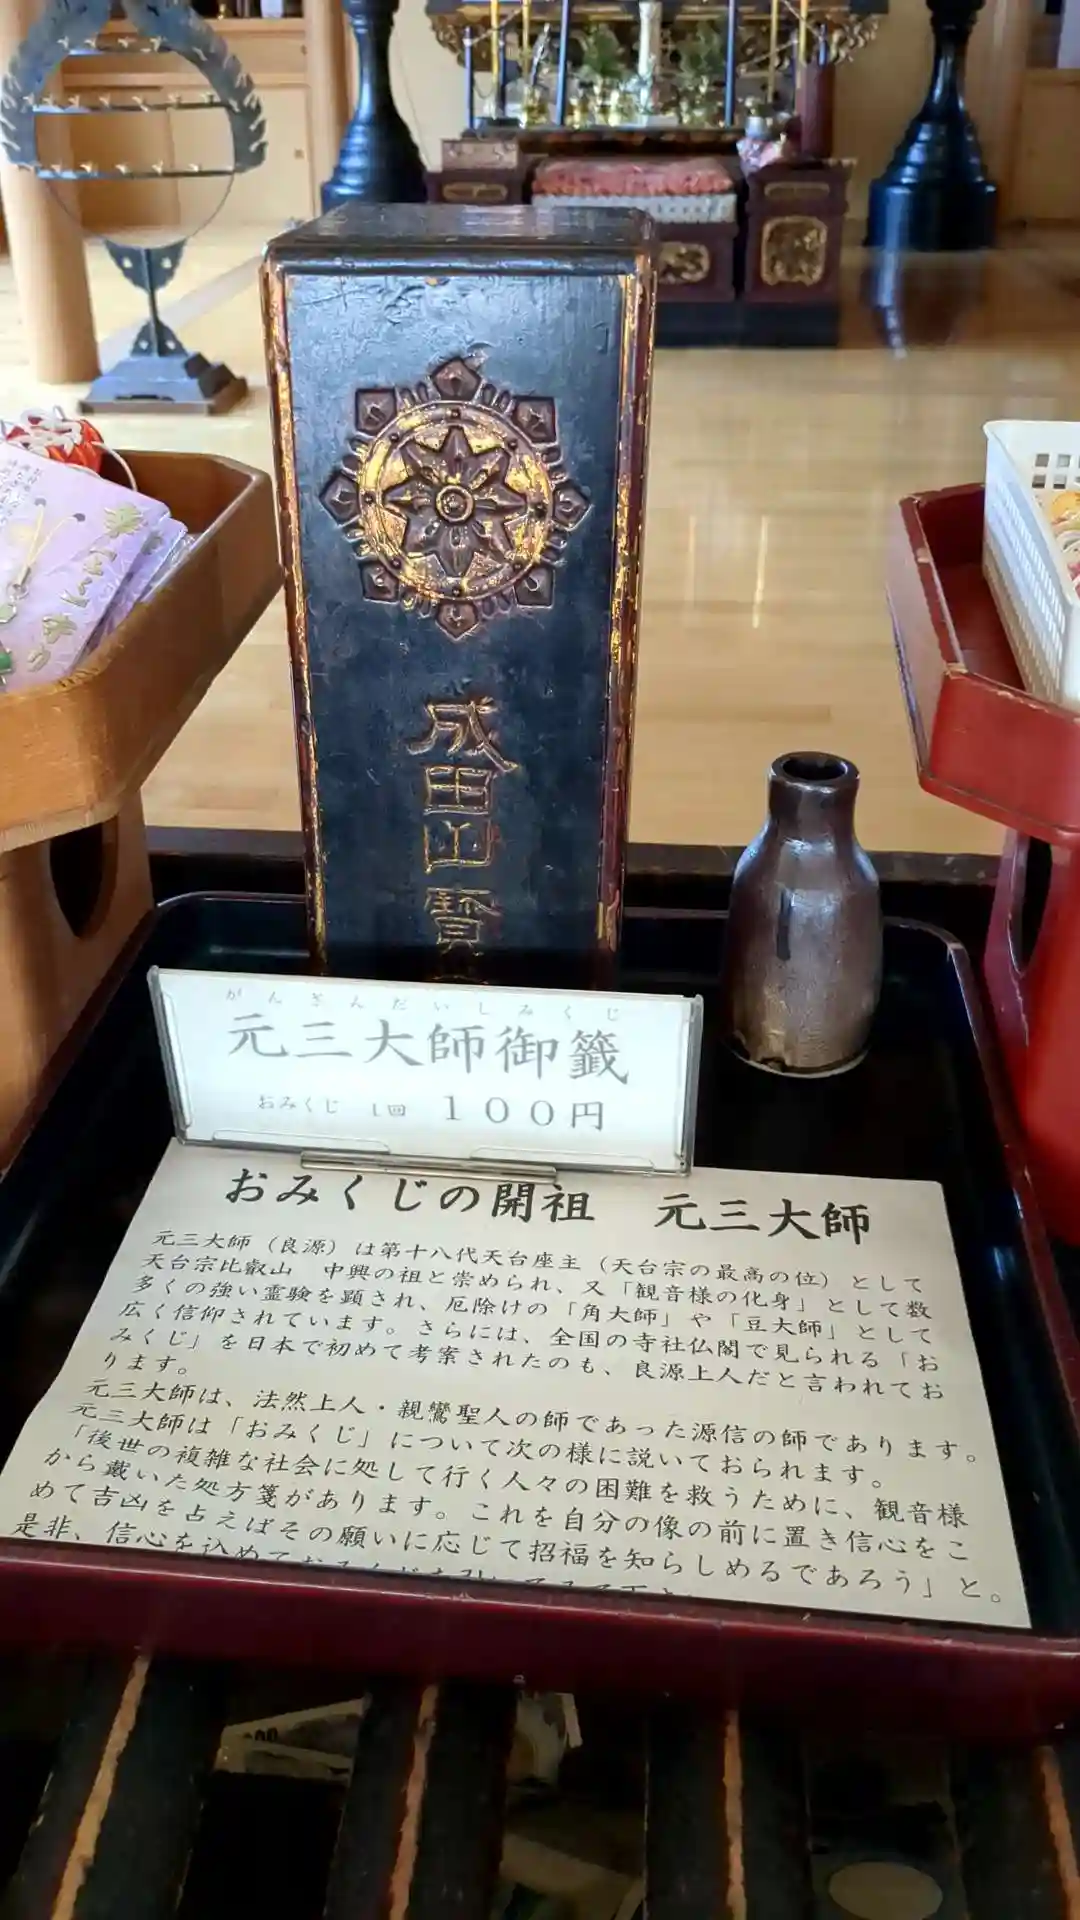 成田山寳
がんざんだいしみくじ
元三大師御籤
おみくじ 1回 100円
おみくじの開祖 元三大師
元三大師（良源）は第十八代天台座主（天台宗の最高の位）として
天台宗比叡山 中興の祖と崇められ、又「観音様の化身」として数
多くの強い霊験を顕され、厄除けの「角大師」や「豆大師」として
広く信仰されています。さらには、全国の寺社仏閣で見られる「お
みくじ」を日本で初めて考案されたのも、良源上人だと言われてお
ります。
元三大師は、法然上人・親鸞聖人の師であった源信の師であります。
元三大師は「おみくじ」について次の様に説いておられます。
「後世の複雑な社会に処して行く人々の困難を救うために、観音様
から戴いた処方箋があります。これを自分の像の前に置き信心をこ
めて吉凶を占えばその願いに応じて招福を知らしめるであろう」と。
是非、信心を込めておみくじを引いてみて下さ